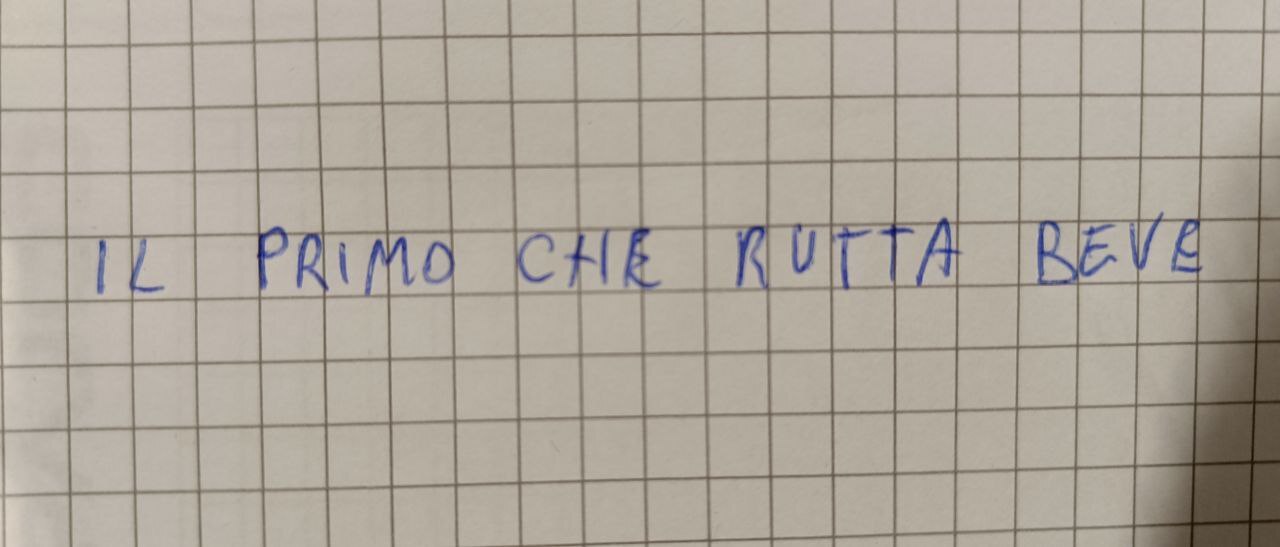 IL PRIMO CHE RUTTA BEVE